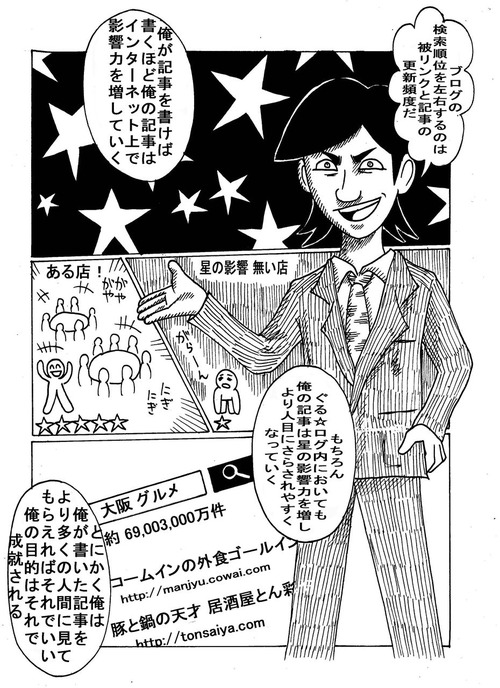 ブログの
検索順位を左右するのは
被リンクと記事の
更新頻度だ
俺が記事を書けば
書くほど俺の記事は
インターネット上で
影響力を増していく
星の影響 無い店
がらーん
ある店！
がやがや
にぎにぎ
もちろん
ぐる☆ログ内においても
俺の記事は星の影響力を増し
より人目にさらされやすく
なっていく
大阪 グルメ
約 69,003,000万件
コームインの外食ゴールイン
http://manjyu.cowai.com/
豚と鍋の天才 居酒屋とん彩
http://tonsaiya.com/
とにかく俺は
俺が書いた記事を
より多くの人間に見て
もらえればそれでいい
俺の目的はそれで
成就される